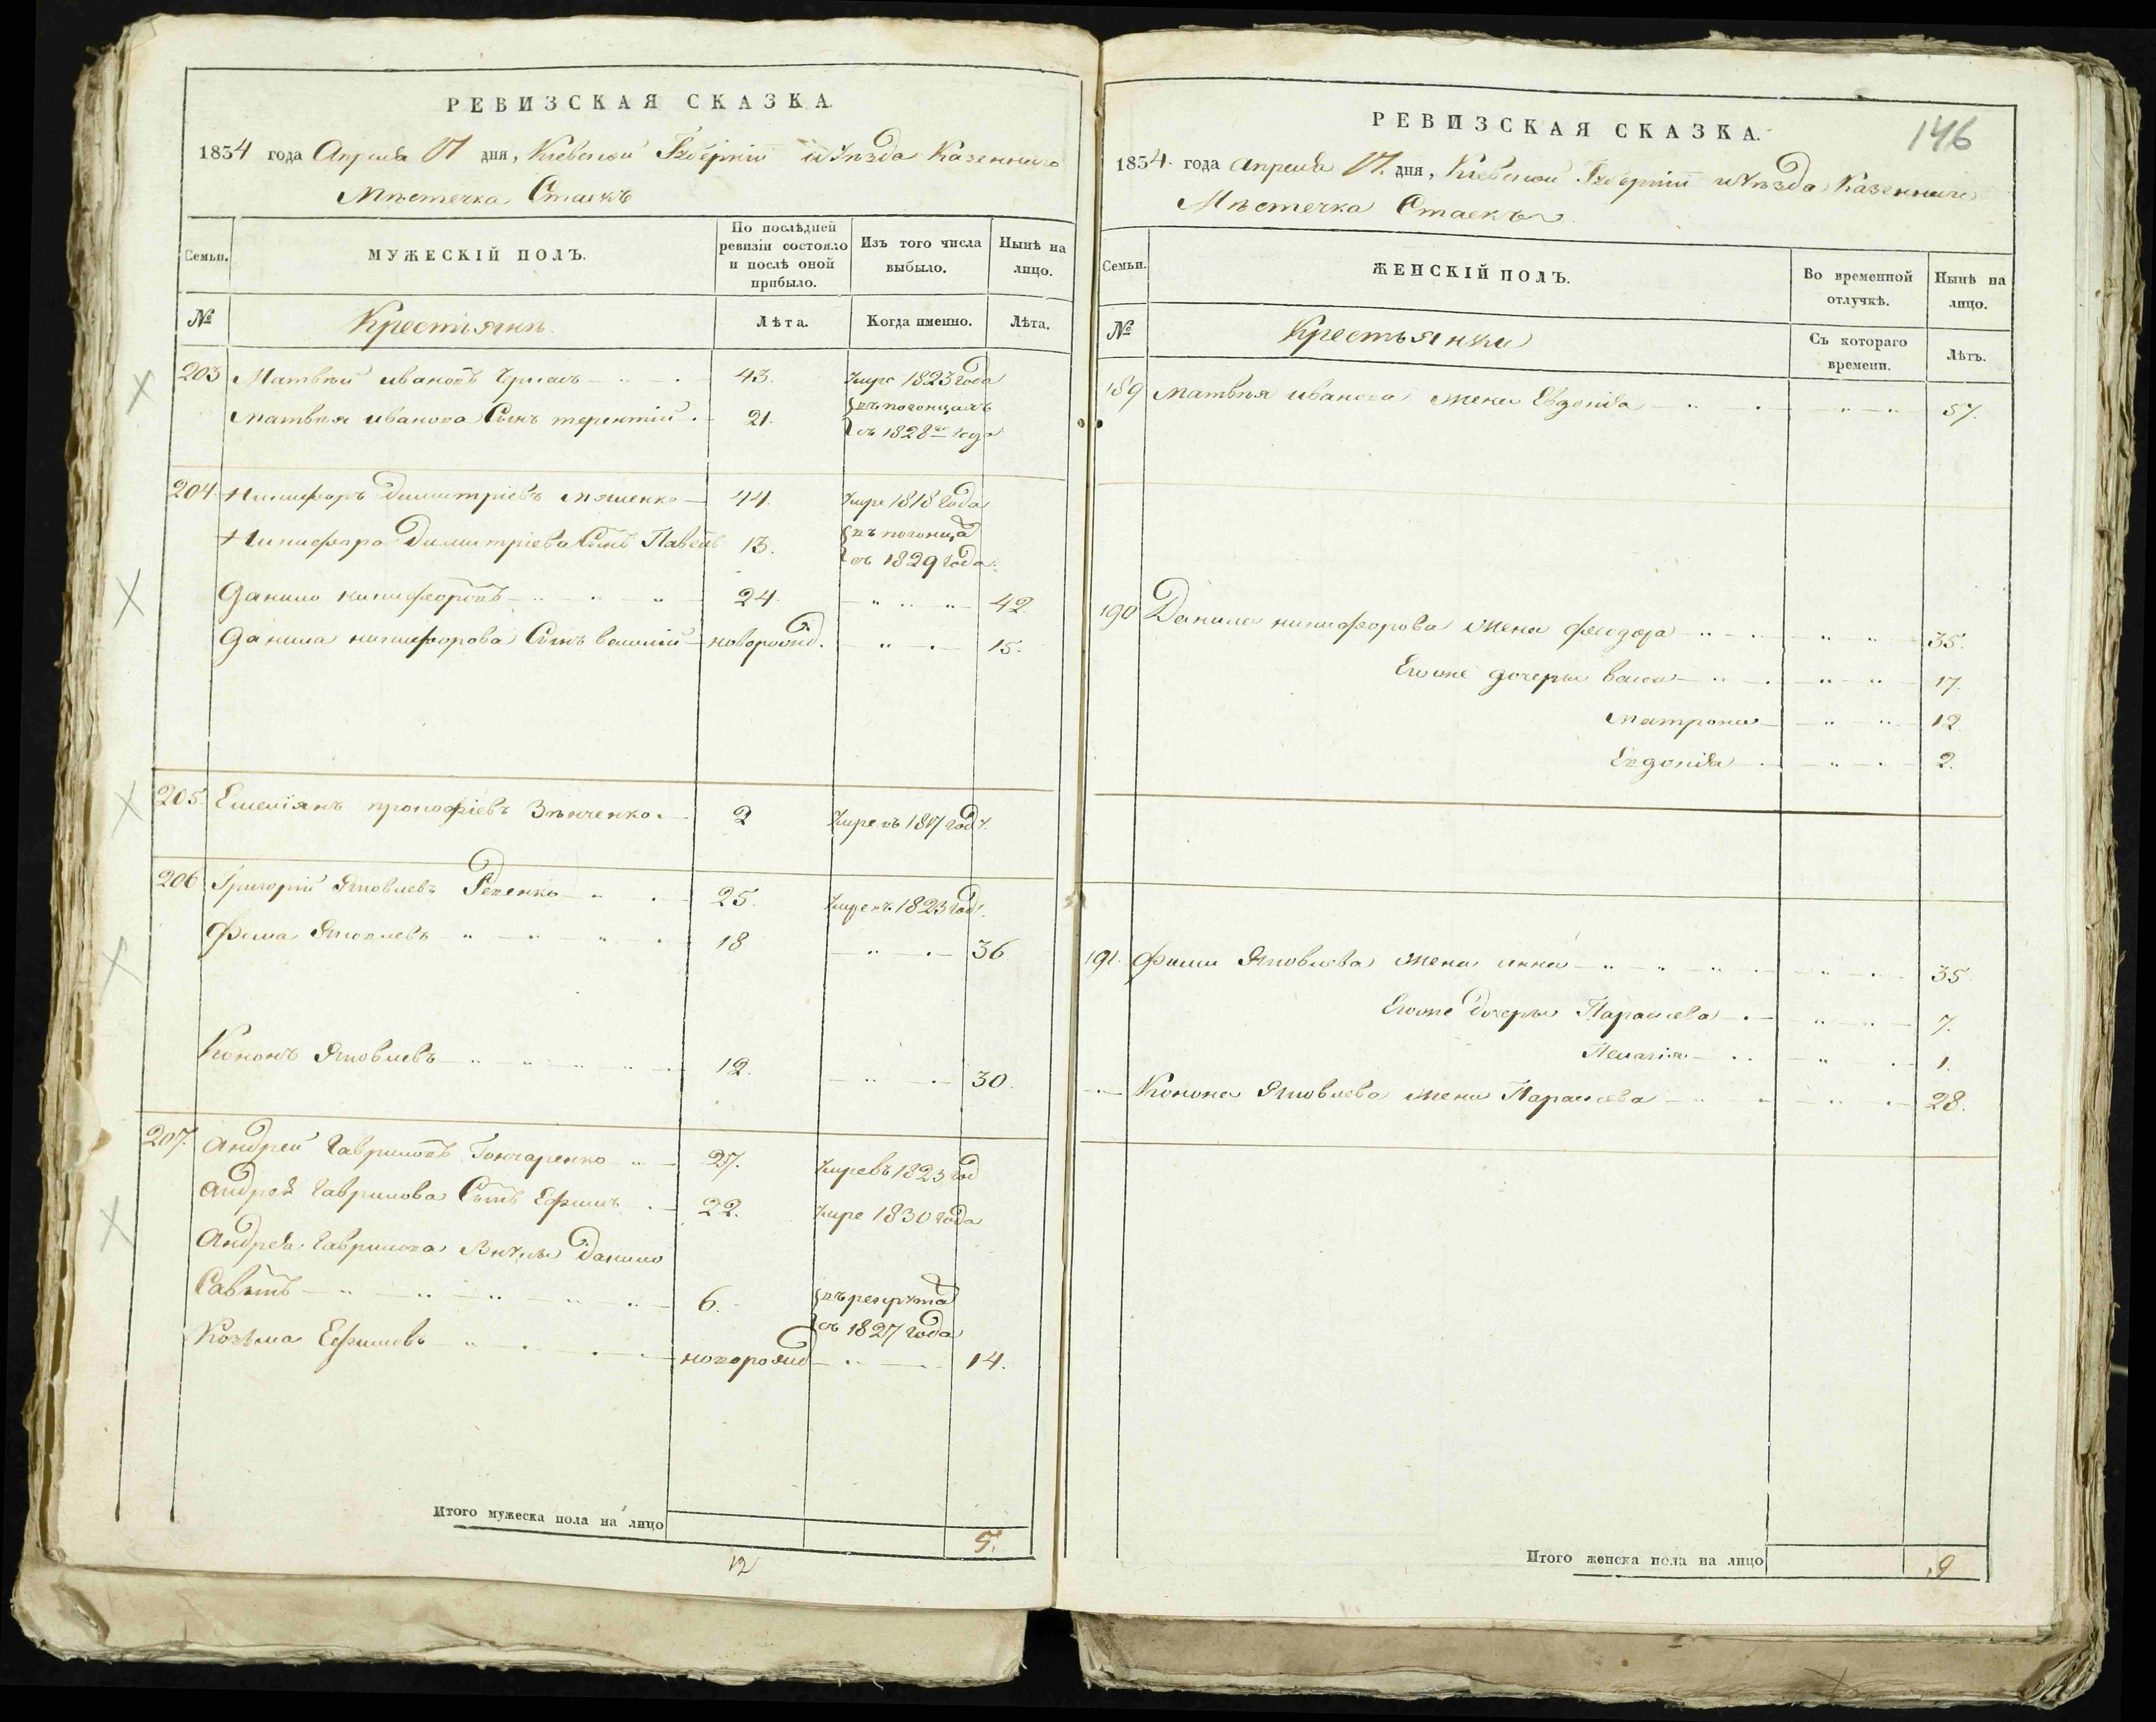 РЕВИЗСКАЯ СКАЗКА.
1834 года Апреля 17 дня, Киевской Губерніи и уѣзда Казеннаго
Мѣстечка Стаекъ
Семьи.
МУЖЕСКІЙ ПОЛЪ.
По послѣдней ревизіи состояло и послѣ оной прибыло.
Изъ того числа выбыло.
Нынѣ на лицо.
№
Крестіянъ
Лѣта.
Когда именно.
Лѣта.
203 Матвѣй ивановъ 43. умре 1823 года
Матвѣя иванова Сынъ терентій 21. въ погонцахъ
съ 1828го года
204 Никифоръ димитріевъ 44. умре 1818 года
Никифора Димитріева Сынъ Павелъ 13. въ погонца
съ 1829 года
Данило никифоровъ 24. 42.
Данила никифорова Сынъ василій новорожд. 15.
205. Емеліянъ прокофіевъ Зѣнченко. 2 умре въ 1817 году.
206 Григорій Яковлевъ 25. умре въ 1823 год.
Фима Яковлевъ 18 36
Кононъ Яковлевъ 12. 30.
207. Андрей Гавриловъ Гончаренко 27. умре въ 1823 год
Андрея Гаврилова Сынъ Ефимъ 22. умре 1830 года
Андрея Гаврилова Внуки Данило
Савинъ 6. въ рекрута
съ 1827 года
Козьма Ефимовъ новорожд 14.
Итого мужеска пола на лицо
5.
12
146
РЕВИЗСКАЯ СКАЗКА.
1834. года Апреля 17. дня, Киевской Губерніи и уѣзда Казеннаго
Мѣстечка Стаекъ
Семьи.
ЖЕНСКІЙ ПОЛЪ.
Во временной отлучкѣ.
Нынѣ на лицо.
№
Крестьянки
Съ котораго времени.
Лѣтъ.
189 Матвѣя иванова жена Евдокія 57.
190 Данила никифорова жена феодора 35.
Егоже дочери васса 17.
матрона 12
Евдокія 2.
191. Фимы Яковлева жена анна 35.
Егоже дочери Параскева 7.
Пелагія 1.
Конона Яковлева жена Параскева 28.
Итого женска пола на лицо
9